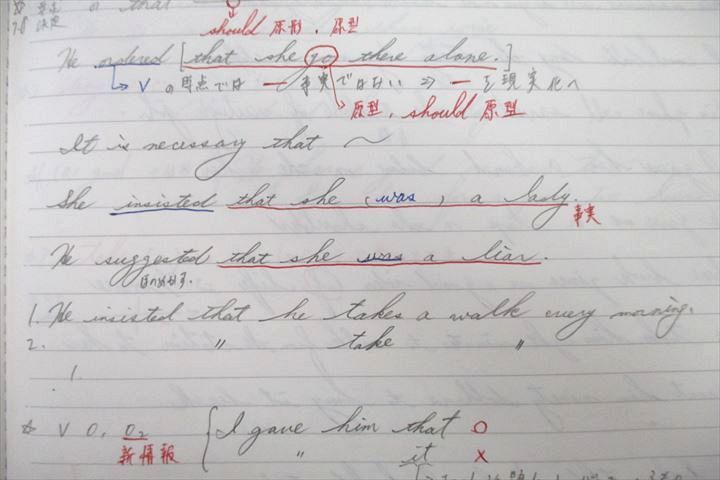 a that
7.8 決定
should 原形, 原型
He ordered [that she go there alone.]
→ V の時点では ー 事実ではない ⇒ ー を現実化へ
→ 原型, should 原型
It is necessary that ～
She insisted that she (was) a lady.
事実
He suggested that she was a liar.
ほのめかす.
1. He insisted that he takes a walk every morning.
2. 〃 take 〃
1.
☆ V O₁ O₂ { I gave him that ○
新情報 〃 it ×